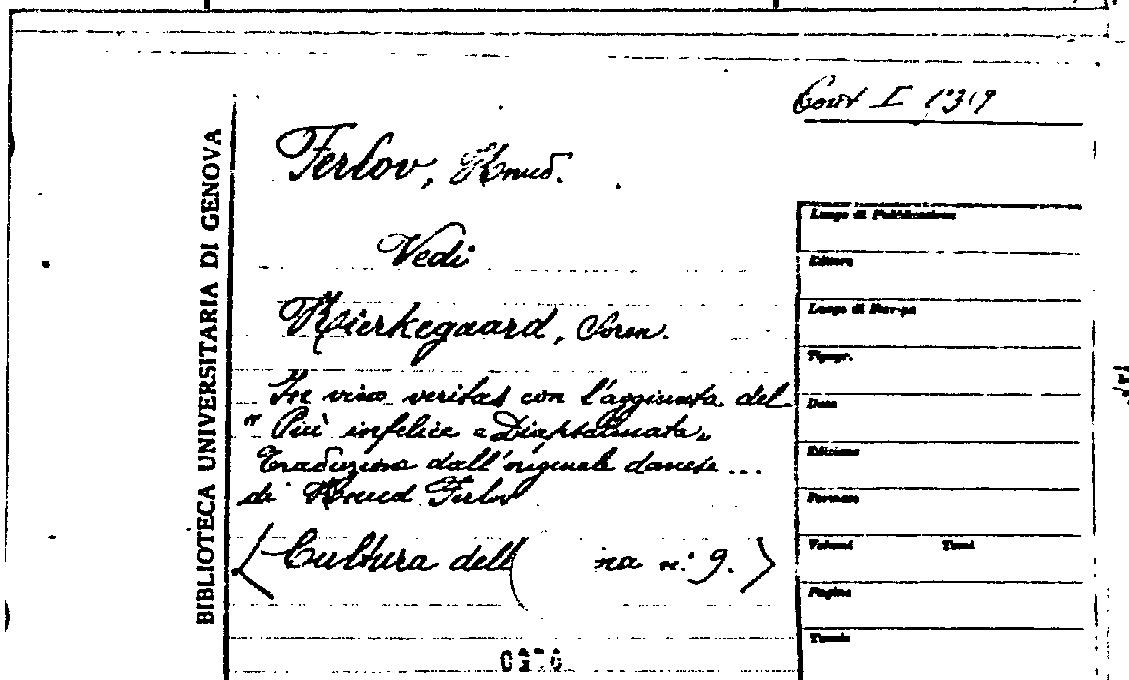 BIBLIOTECA UNIVERSITARIA DI GENOVA
Ferlov, Knud.
Vedi
Kierkegaard, Soren.
In vino veritas con l'aggiunta del
" Più infelice e Diapsalmata„
Traduzione dall'originale danese...
di Knud Ferlov
<Cultura dell na n: 9.>
Luogo di Pubblicazione
Editore
Luogo di Stampa
Tipogr.
Data
Edizione
Formato
Volumi Tomi
Pagine
Tavole